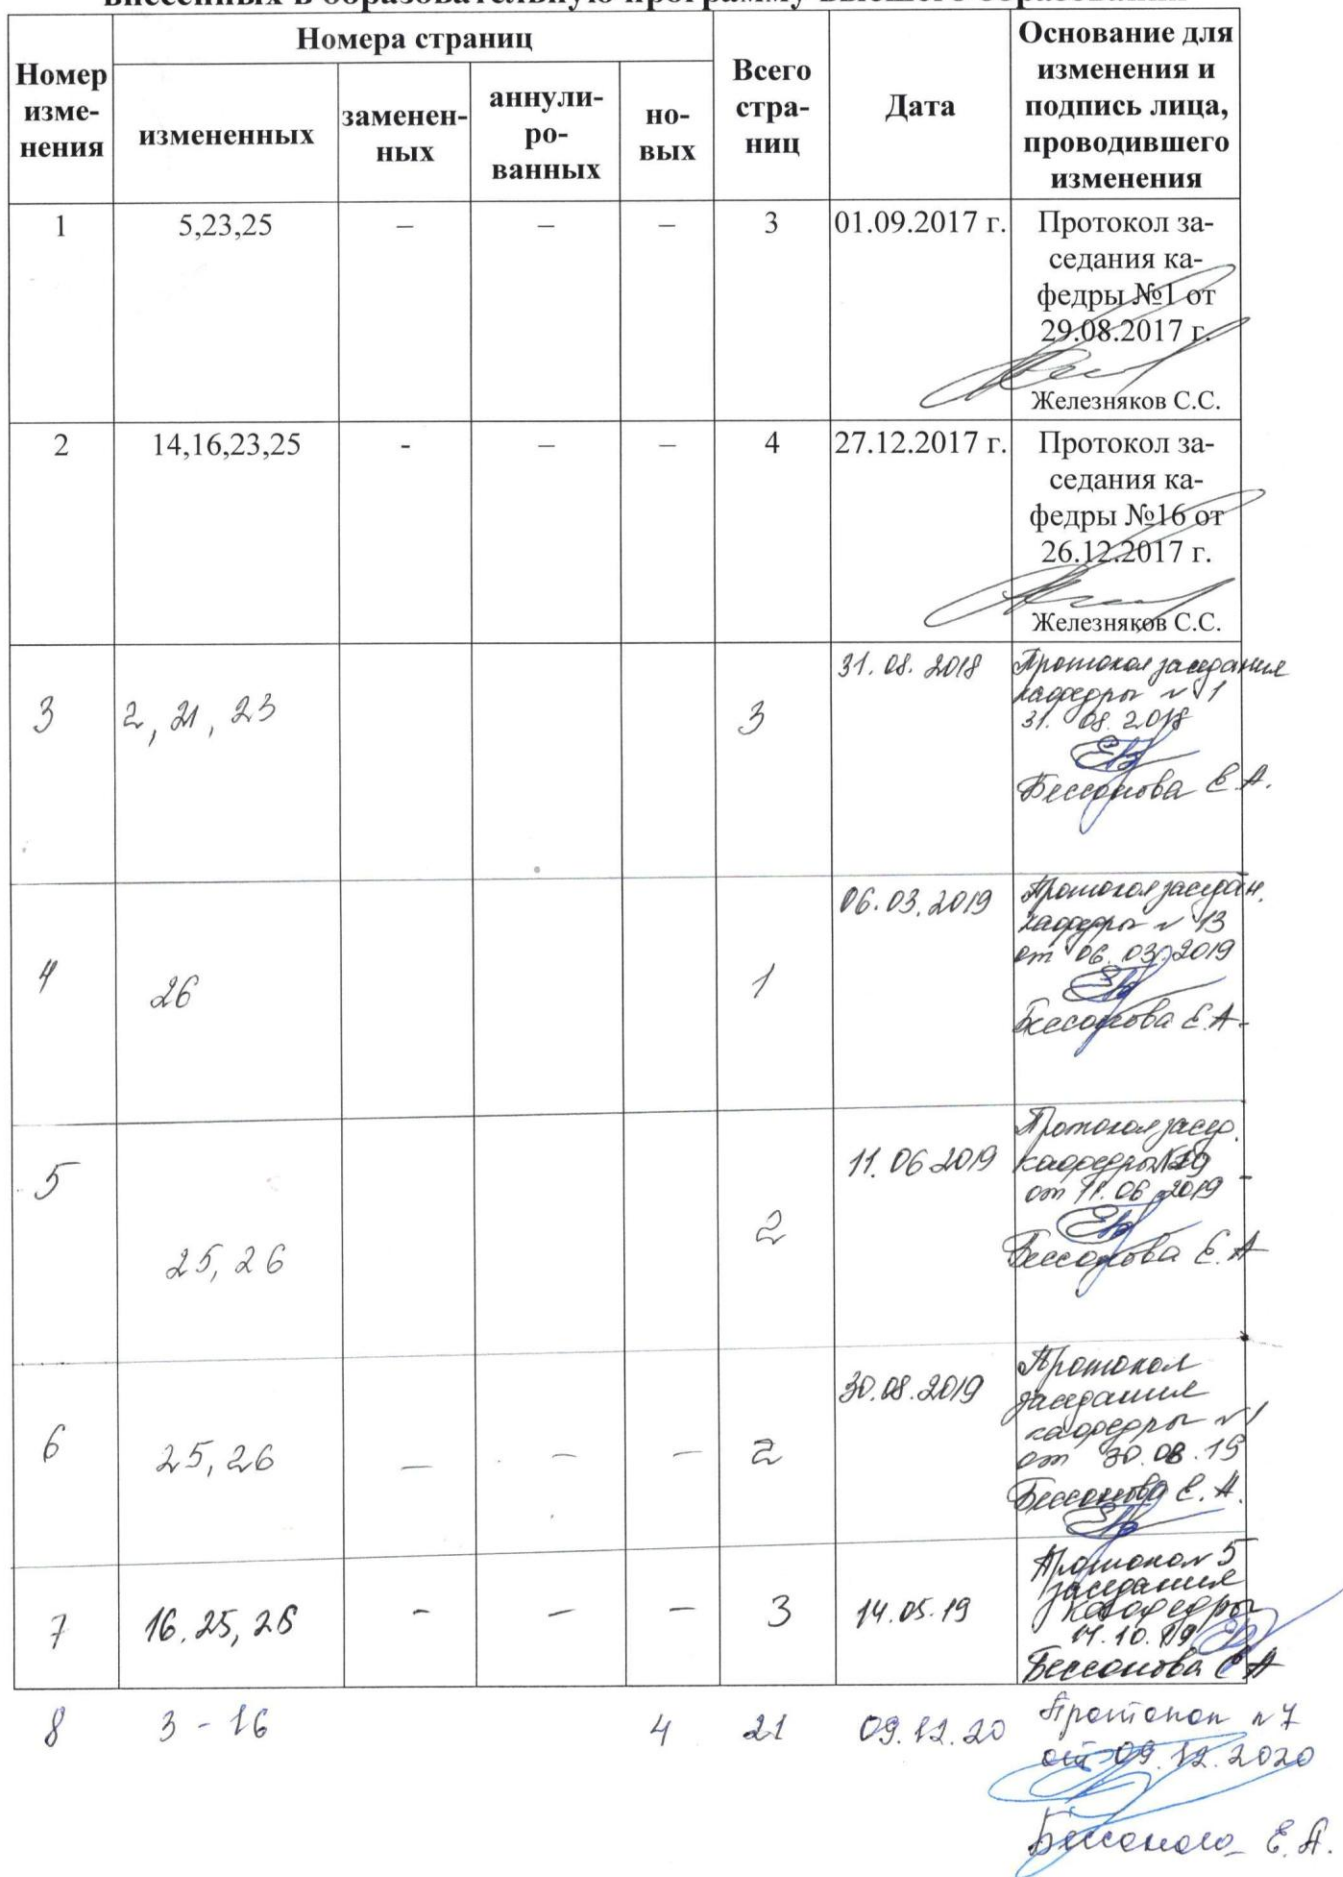 внесенных в образовательную программу высшего образования
Номер
изме-
нения
Номера страниц
измененных
заменен-
ных
аннули-
ро-
ванных
но-
вых
Всего
стра-
ниц
Дата
Основание для
изменения и
подпись лица,
проводившего
изменения
1
5,23,25
–
–
–
3
01.09.2017 г.
Протокол за-
седания ка-
федры №1 от
29.08.2017 г.
Железняков С.С.
2
14,16,23,25
-
–
–
4
27.12.2017 г.
Протокол за-
седания ка-
федры №16 от
26.12.2017 г.
Железняков С.С.
3
2, 21, 23
3
31.08.2018
Протокол заседания
кафедры №1
31.08.2018
Бессонова Е.А.
4
26
1
06.03.2019
Протокол заседан.
кафедры №13
от 06.03.2019
Бессонова Е.А.
5
25, 26
2
11.06.2019
Протокол засед.
кафедры
от 11.06.2019
Бессонова Е.А
6
25, 26
–
–
–
2
30.08.2019
Протокол
заседания
кафедры №1
от 30.08.19
Бессонова Е.А.
7
16.25, 26
-
–
–
3
14.05.19
Протокол 5
заседания
кафедры
Бессонова Е А
8
3 - 16
4
21
09.12.20
Протокол №7
от 09.12.2020
Бессонова Е.А.